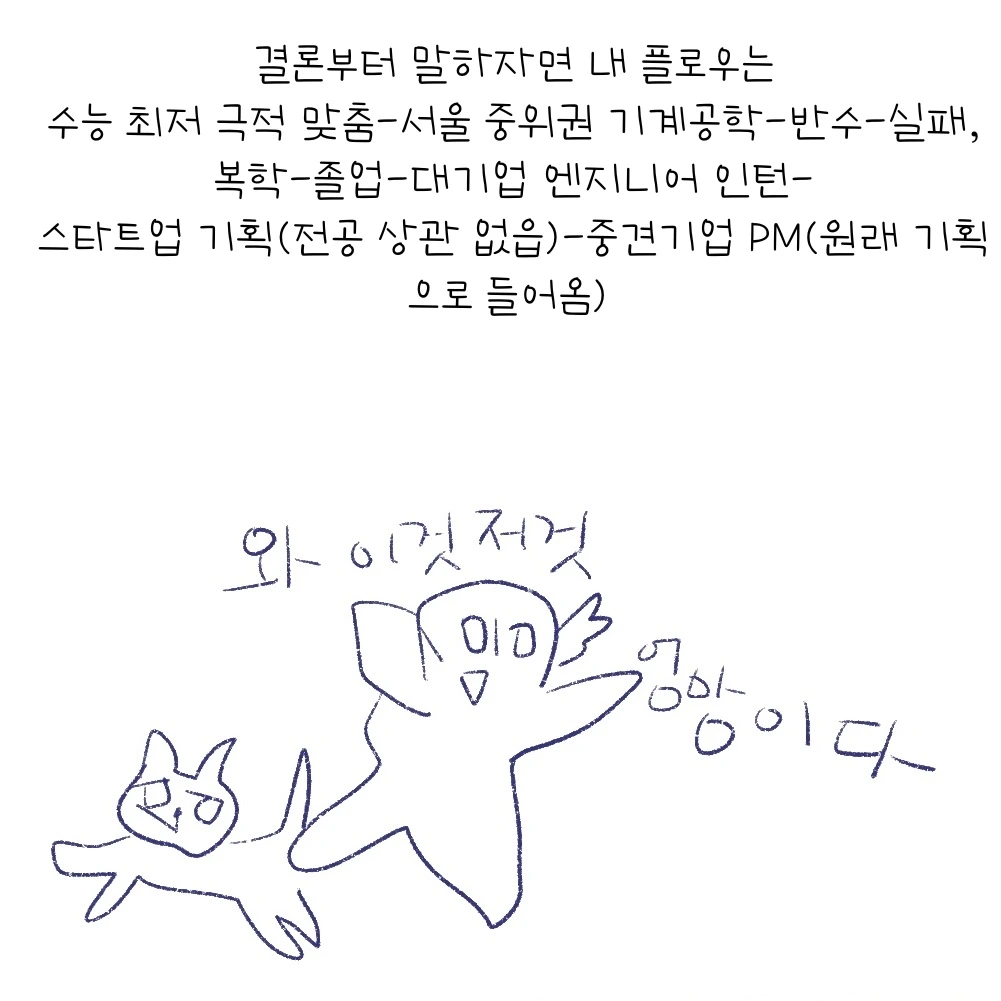 결론부터 말하자면 내 플로우는
수능 최저 극적 맞춤-서울 중위권 기계공학-반수-실패,
복학-졸업-대기업 엔지니어 인턴-
스타트업 기획(전공 상관 없음)-중견기업 PM(원래 기획
으로 들어옴)
와 이것저것
엉망이다